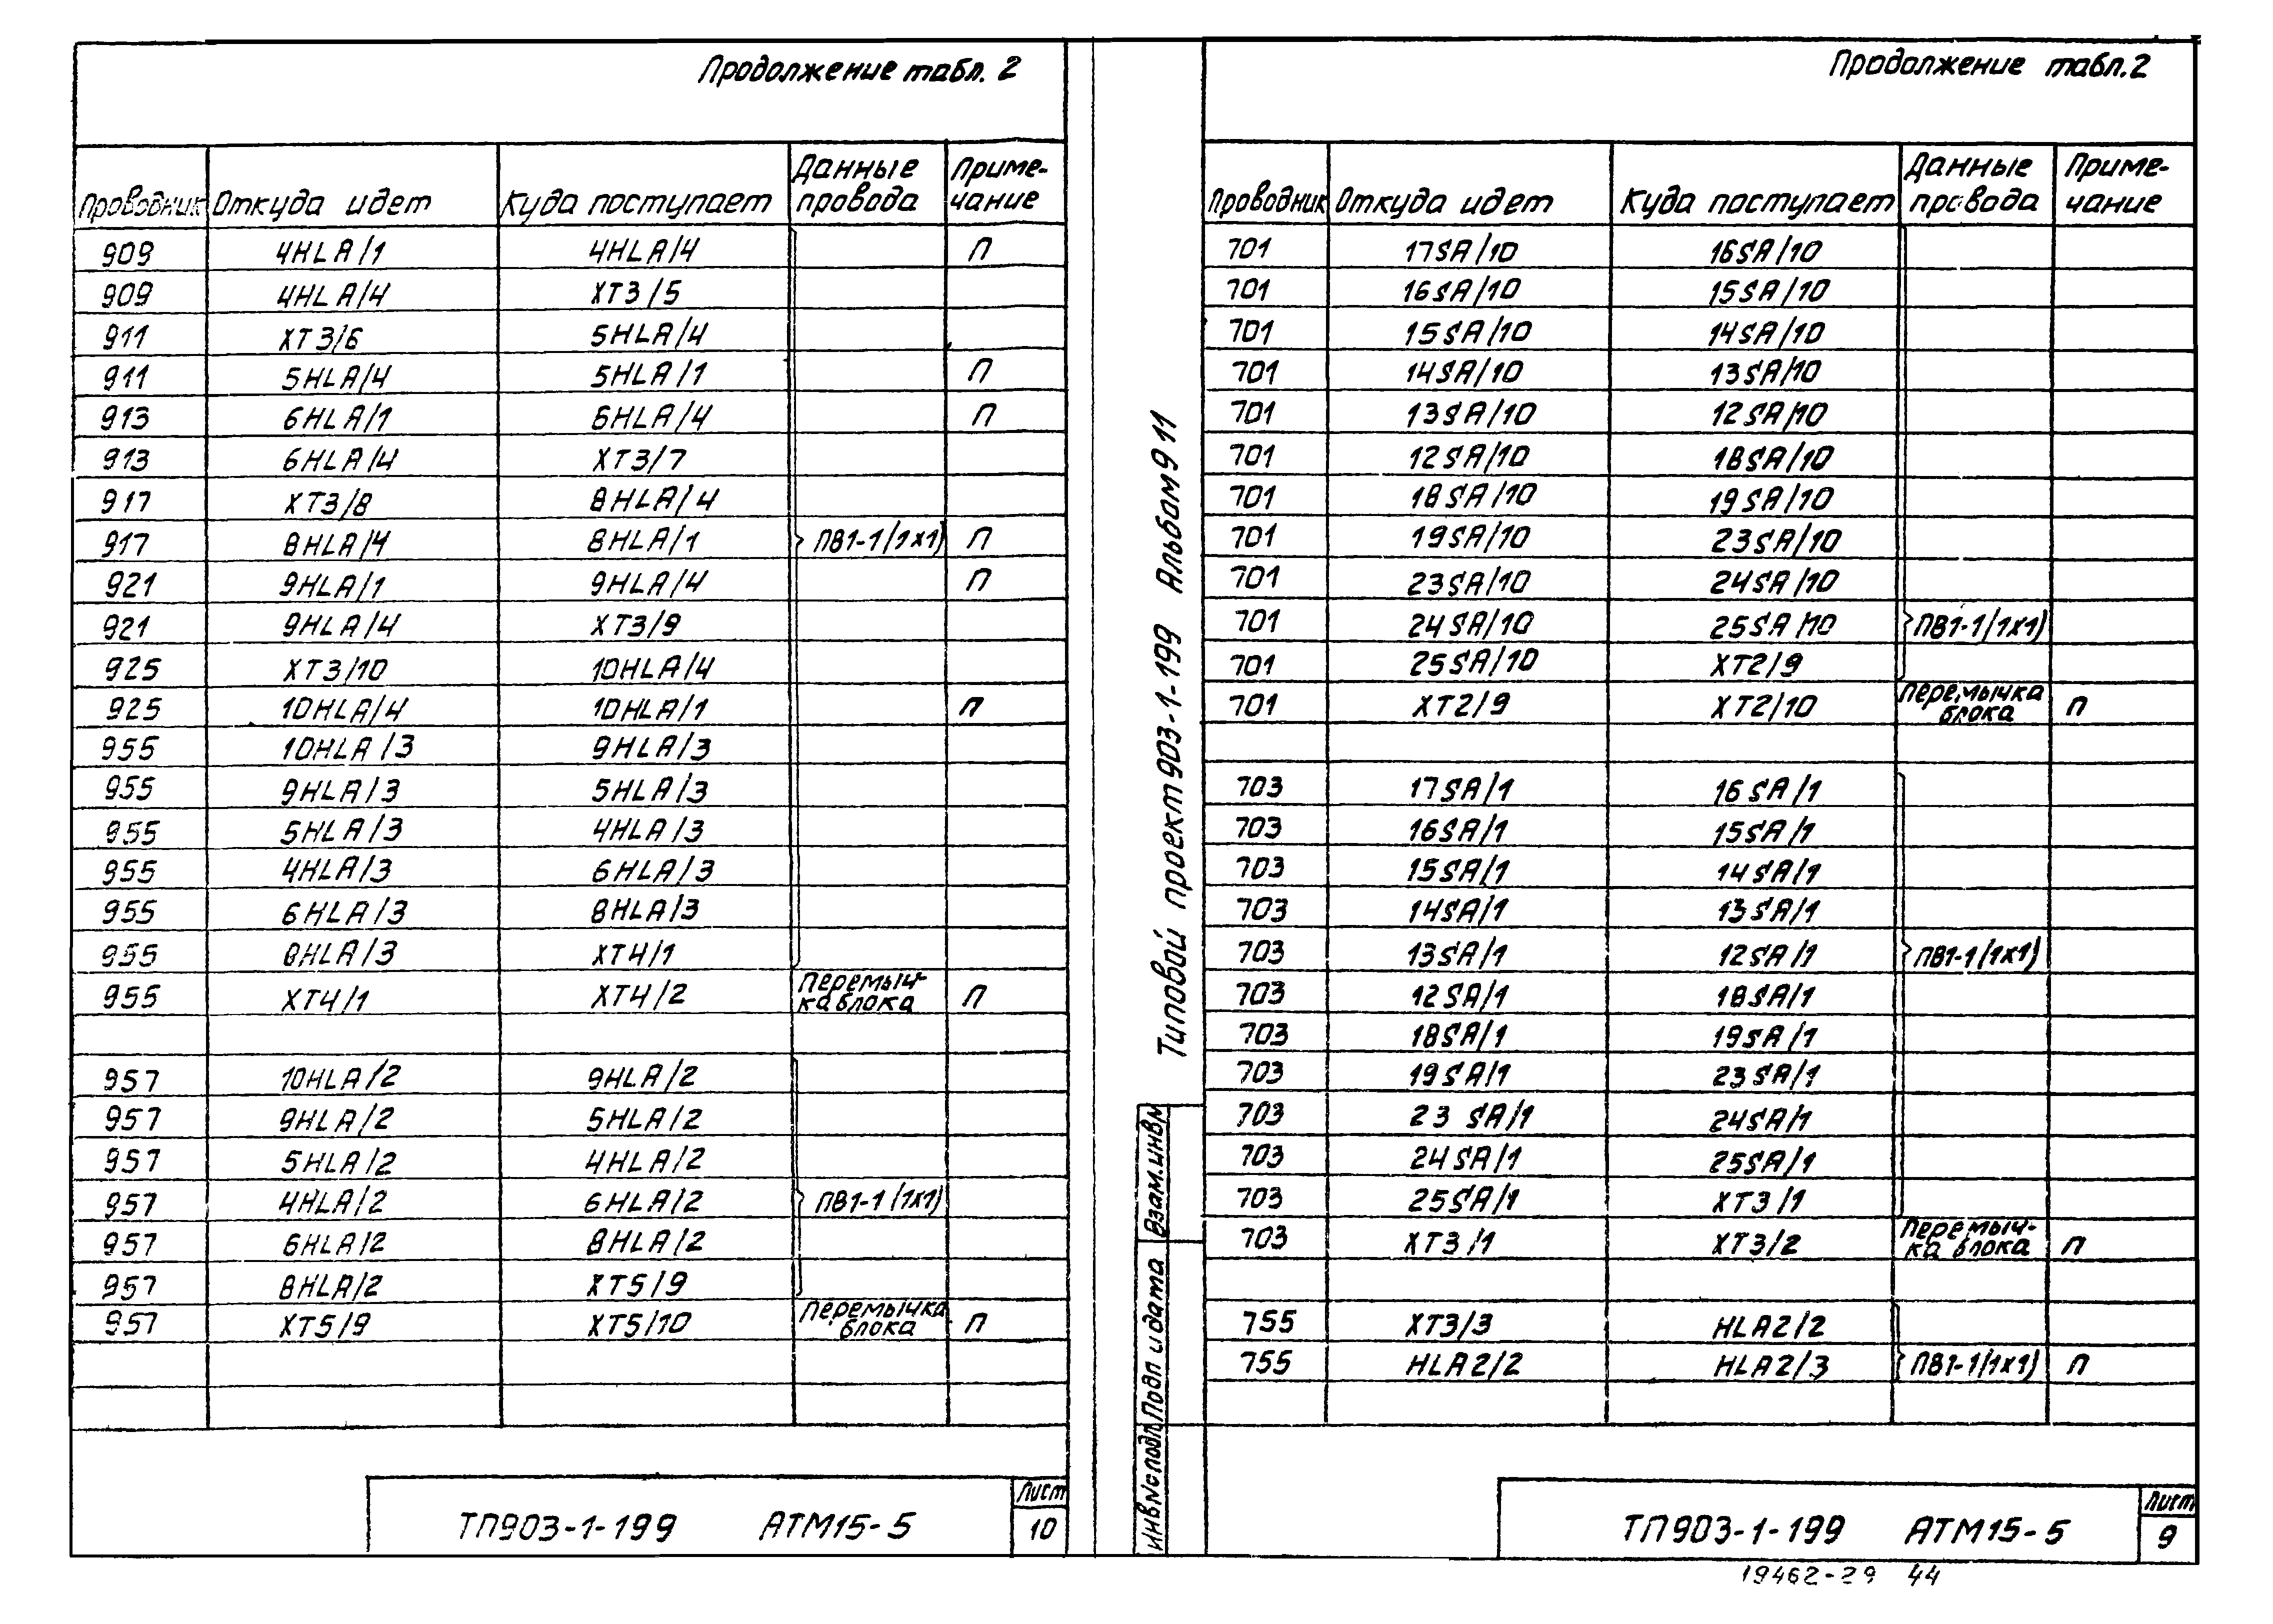 Продолжение табл. 2
Проводник Откуда идет Куда поступает Данные провода Приме-чание
909 4HLA/1 4HLA/4 П
909 4HLA/4 XT3/5
911 XT3/6 5HLA/4
911 5HLA/4 5HLA/1 П
913 6HLA/1 6HLA/4 П
913 6HLA/4 XT3/7
917 XT3/8 8HLA/4
917 8HLA/4 8HLA/1 ПВ1-1/1х1) П
921 9HLA/1 9HLA/4 П
921 9HLA/4 XT3/9
925 XT3/10 10HLA/4
925 10HLA/4 10HLA/1 П
955 10HLA/3 9HLA/3
955 9HLA/3 5HLA/3
955 5HLA/3 4HLA/3
955 4HLA/3 6HLA/3
955 6HLA/3 8HLA/3
955 8HLA/3 XT4/1
955 XT4/1 XT4/2 Перемыч-ка блока П
957 10HLA/2 9HLA/2
957 9HLA/2 5HLA/2
957 5HLA/2 4HLA/2
957 4HLA/2 6HLA/2 ПВ1-1/1х1)
957 6HLA/2 8HLA/2
957 8HLA/2 XT5/9
957 XT5/9 XT5/10 Перемычка блока П
ТП903-1-199 АТМ15-5
Лист
10
Типовой проект 903-1-199 Альбом 9 11
Взам.инв№
Подп и дата
Инв№подл
Продолжение табл.2
Проводник Откуда идет Куда поступает Данные провода Приме-чание
701 17SA/10 16SA/10
701 16SA/10 15SA/10
701 15SA/10 14SA/10
701 14SA/10 13SA/10
701 13SA/10 12SA/10
701 12SA/10 18SA/10
701 18SA/10 19SA/10
701 19SA/10 23SA/10
701 23SA/10 24SA/10
701 24SA/10 25SA/10 ПВ1-1/1х1)
701 25SA/10 XT2/9
701 XT2/9 XT2/10 Перемычка блока П
703 17SA/1 16SA/1
703 16SA/1 15SA/1
703 15SA/1 14SA/1
703 14SA/1 13SA/1
703 13SA/1 12SA/1 ПВ1-1/1х1)
703 12SA/1 18SA/1
703 18SA/1 19SA/1
703 19SA/1 23SA/1
703 23 SA/1 24SA/1
703 24SA/1 25SA/1
703 25SA/1 XT3/1
703 XT3/1 XT3/2 Перемыч-ка блока П
755 XT3/3 HLA2/2
755 HLA2/2 HLA2/3 ПВ1-1/1х1) П
ТП903-1-199 АТМ15-5
Лист
9
19462-29 44